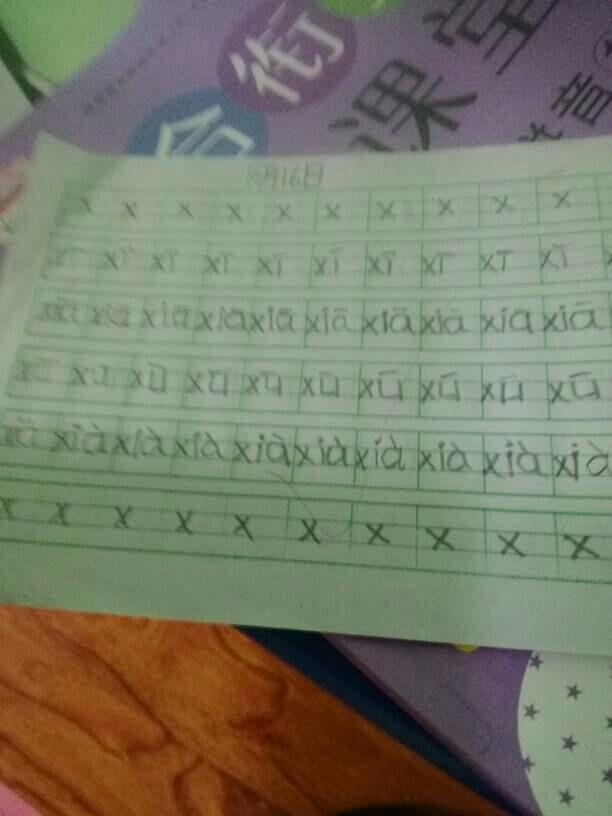 衔
课堂
拼音
10月16日
x x x x x x x x x x
xī xī xī xī xī xī xī xī xī xī
xiā xiā xiā xiā xiā xiā xiā xiā xiā xiā
xū xū xū xū xū xū xū xū xū xū
xià xià xià xià xià xià xià xià xià xià
x x x x x x x x x x